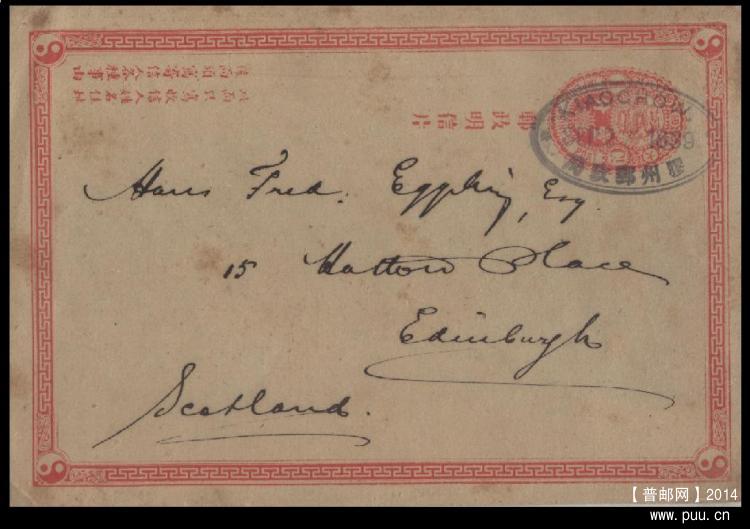 郵政明信片
KIAOCHOW
1899
膠州郵政局
Hans Fred. Eggeling, Esq
15 Hatton Place
Edinburgh
Scotland.
【普邮网】2014
www.puu.cn